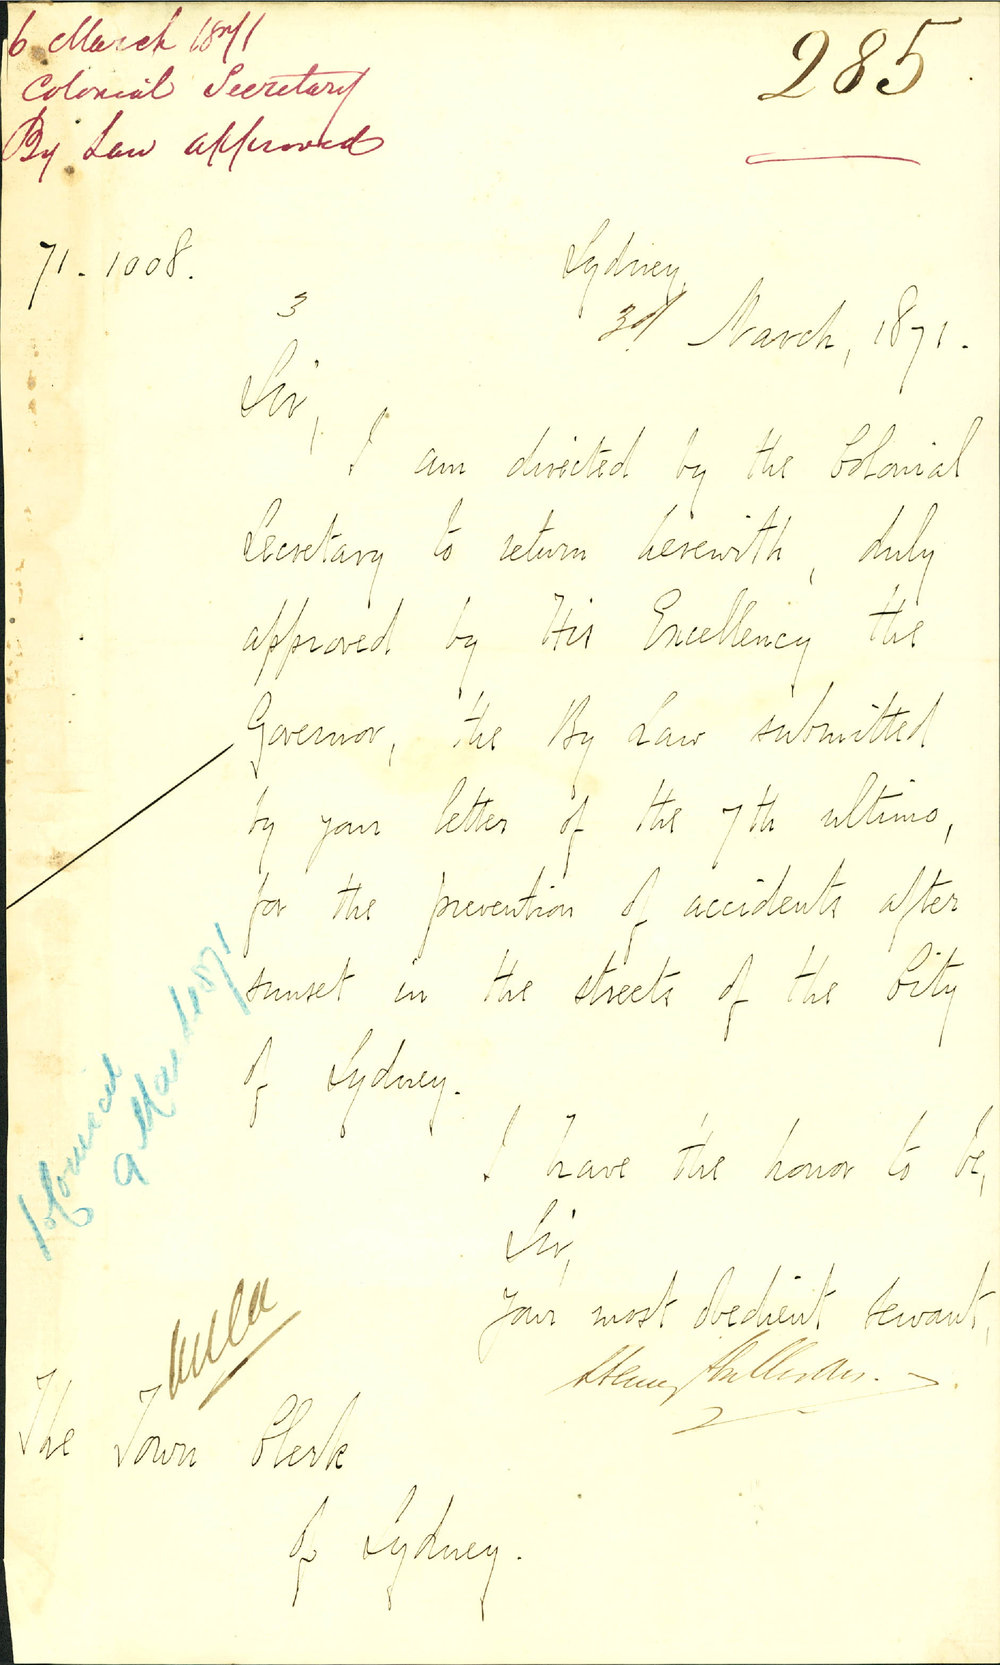 6 March 1871
Colonial Secretary
By Law approved
285
71-1008.
3
Sydney,
3d March, 1871.
Sir,
I am directed by the Colonial
Secretary to return herewith, duly
approved by His Excellency the
Governor, the By Law submitted
by your letter of the 7th ultimo,
for the prevention of accidents after
sunset in the streets of the City
of Sydney.
Colonial
9 March 1871
I have the honor to be,
Sir,
Your most obedient servant,
Henry Halloran.
The Town Clerk
of Sydney.